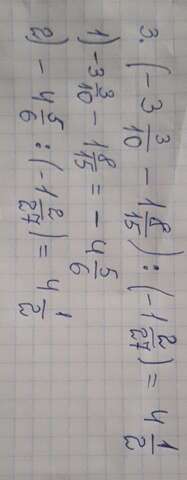 3. (-3 3/10 - 1 8/15) : (-1 2/27) = 4 1/2
1) -3 3/10 - 1 8/15 = -4 5/6
2) -4 5/6 : (-1 2/27) = 4 1/2